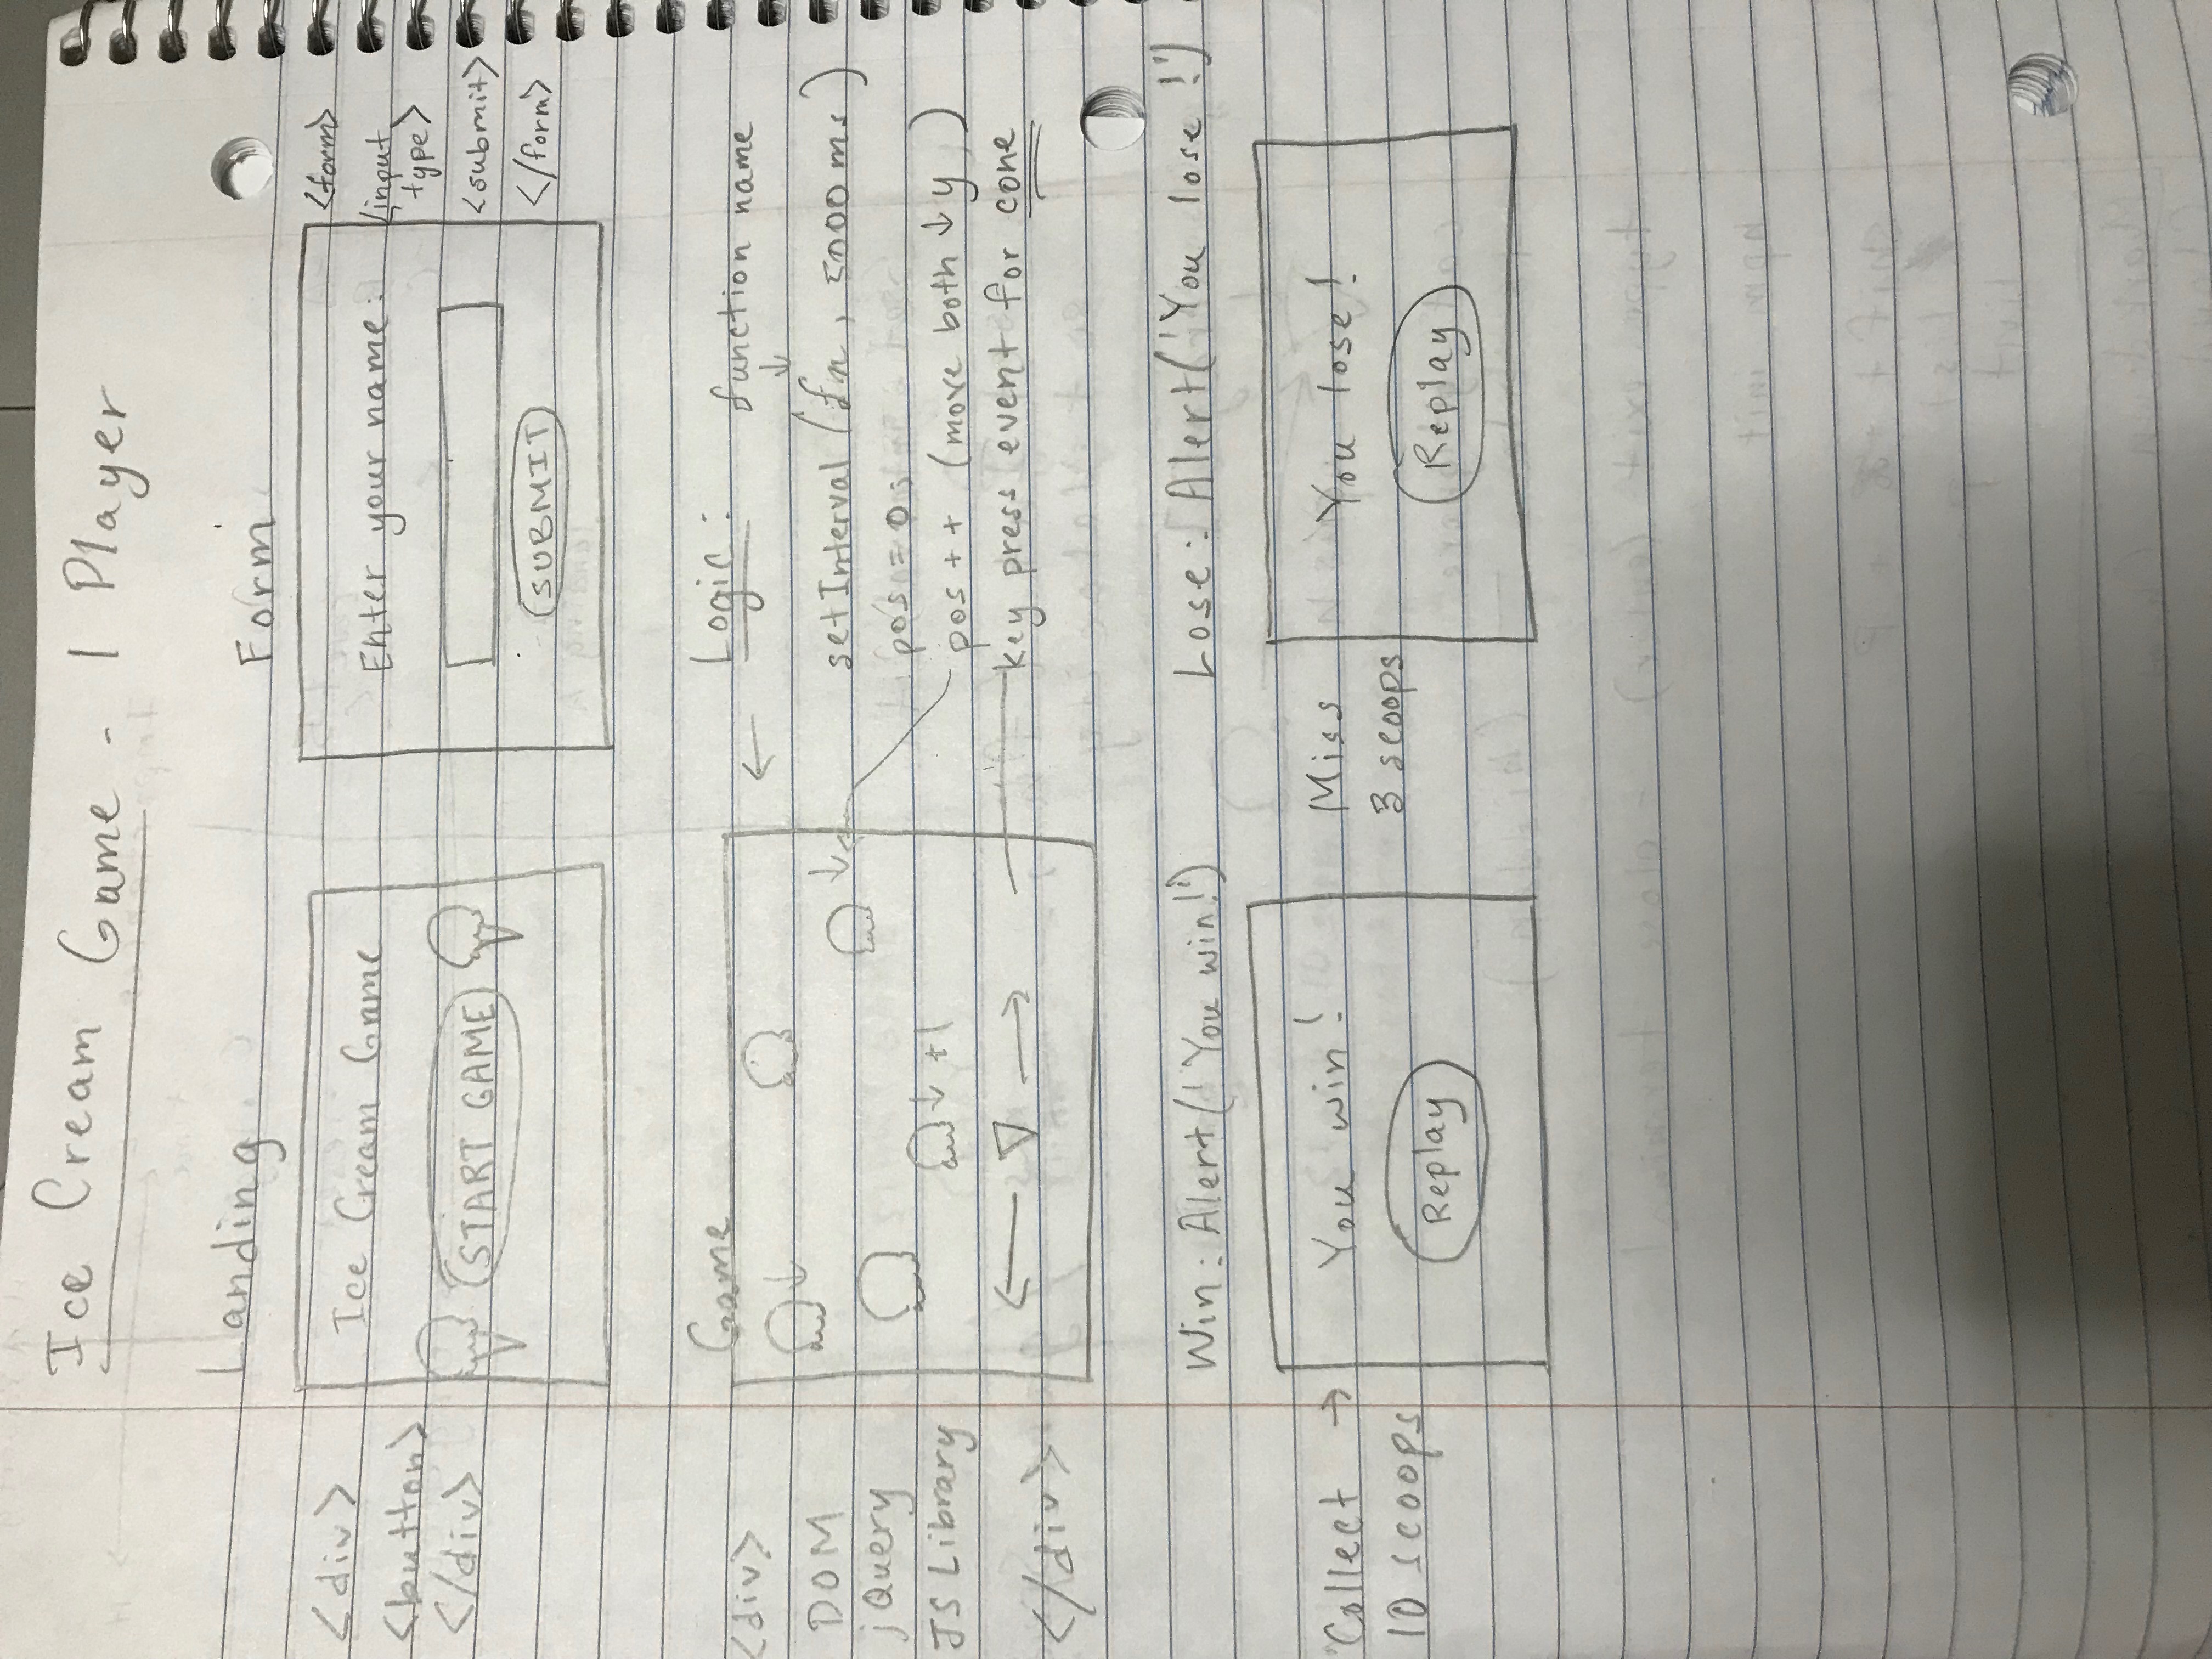 Ice Cream Game - 1 Player
Landing
<div>
<button>
</div>
Ice Cream Game
START GAME
Form
Enter your name:
SUBMIT
<form>
<input
type>
<submit>
</form>
Game
<div>
DOM
jQuery
JS Library
</div>
+1
Logic:
function name
setInterval (fn, 5000 ms)
pos = 0;
pos ++ (move both ↓ y )
key press event for cone
Win: Alert('You win!')
Collect →
10 scoops
You win!
Replay
Lose: Alert('You lose!')
Miss
3 scoops
You lose!
Replay
type exit (enter) - close terminal
npm init